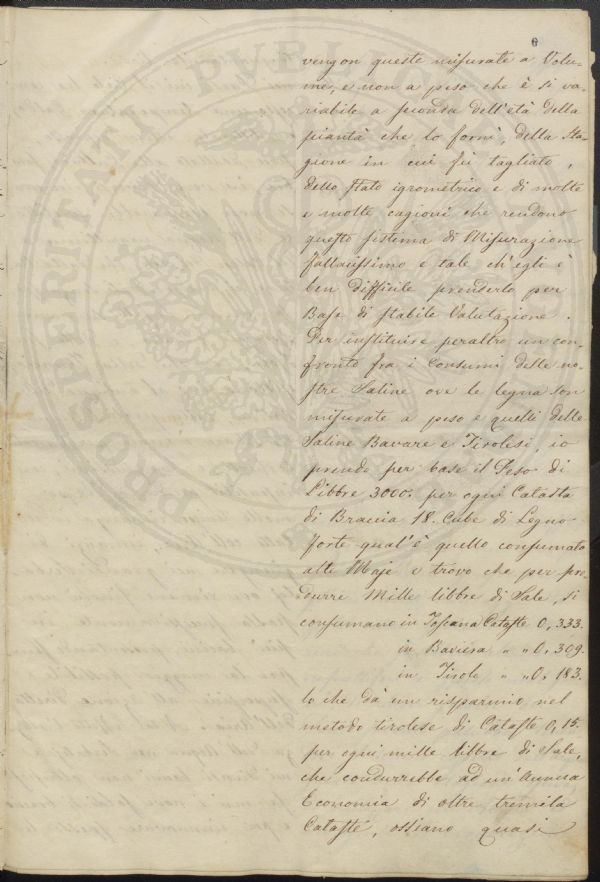 6
vengon queste misurate a Volu-
me, e non a peso che è si va-
riabile a seconda dell'età della
pianta che lo fornì, della Sta-
gione in cui fù tagliato,
dello stato igrometrico e di molte
e molte cagioni che rendono
questo sistema di Misurazione
fallacissimo e tale ch'egli è
ben difficile prenderlo per
Base di stabile Valutazione.
Per instituire peraltro un con-
fronto fra i Consumi delle no-
stre Saline ove le legna son
misurate a peso e quelli delle
Saline Bavare e Tirolesi, io
prendo per base il Peso di
Libbre 3000. per ogni Catasta
di Braccia 18. Cube di Legno
forte qual'è quello consumato
alle Moje e trovo che per pro-
durre Mille libbre di Sale, si
consumano in Toscana Cataste 0,333.
in Baviera " " 0,309.
in Tirolo " " 0,183.
lo che dà un risparmio nel
metodo tirolese di Cataste 0,15.
per ogni mille libbre di Sale,
che condurrebbe ad un'Annua
Economia di oltre tremila
Cataste, ossiano quasi
PROSPERITATI PVBLICAE